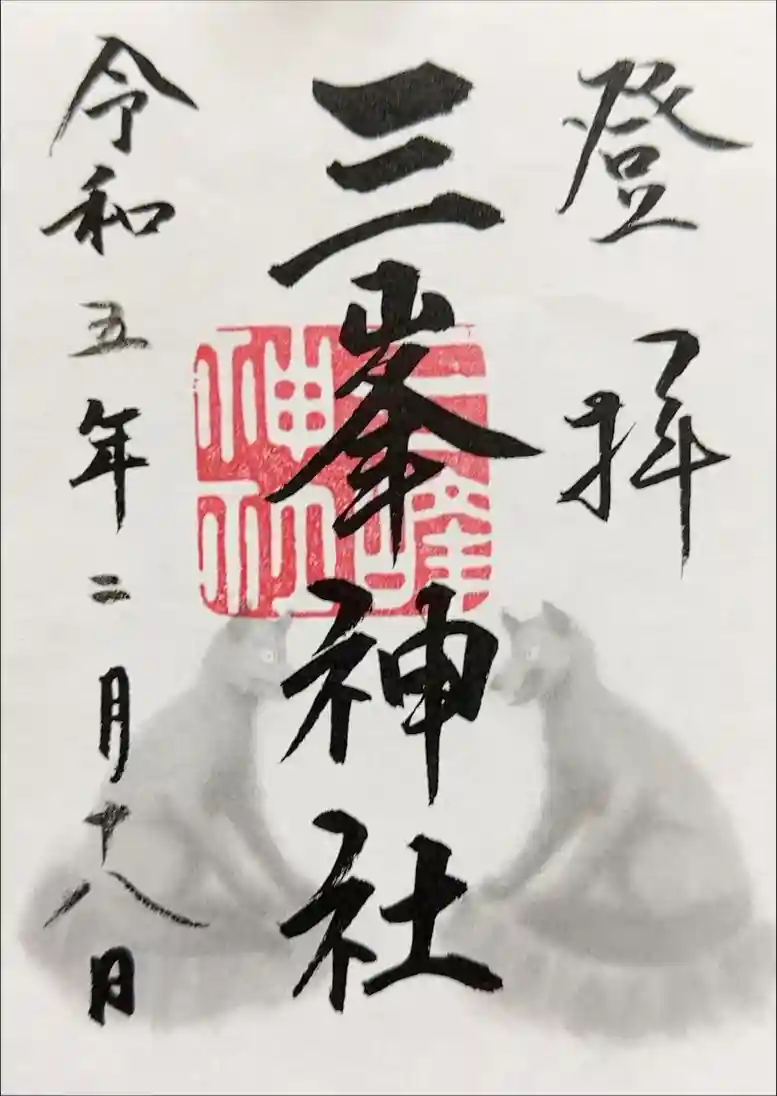 登拝
三峯神社
三峰神社
令和五年二月十八日